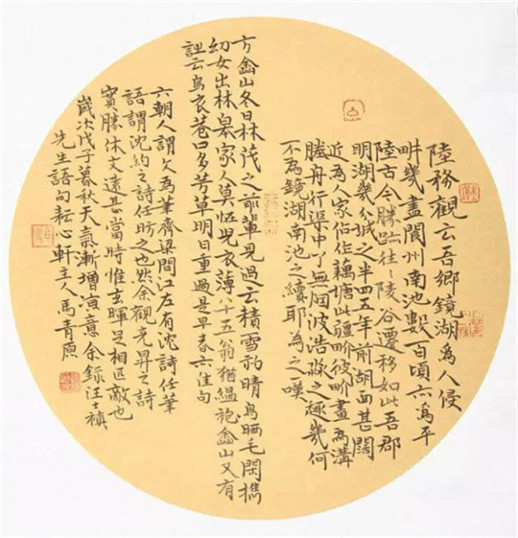 陸務觀云吾鄉鏡湖為人侵
畊幾盡閬州南池數百頃六為平
陸古今勝蹟往往陵谷遷移如此吾郡
明湖幾於城之半四五年前湖面甚闊
近為人家佔作藕塘此疆畍彼畍畫為溝
塍舟行渠中了無烟波浩渺之趣幾何
不為鏡湖南池之續耶為之嘆
方嵞山冬日林茂之前輩見過云積雪初晴鳥晒毛閑攜
幼女出林皋家人莫怪兒衣薄八十五翁猶縕袍嵞山又有
云烏衣巷口多芳草明日重過是早春六佳句
六朝人謂文為筆齊梁間江左有沈詩任筆
語謂沈約之詩任昉之也然余觀彥昇之詩
實勝休文遠甚當時惟玄暉足相匹敵也
歲次戊子暮秋天氣漸增涼意余錄汪士禎
先生語句耘心軒主人馬青原